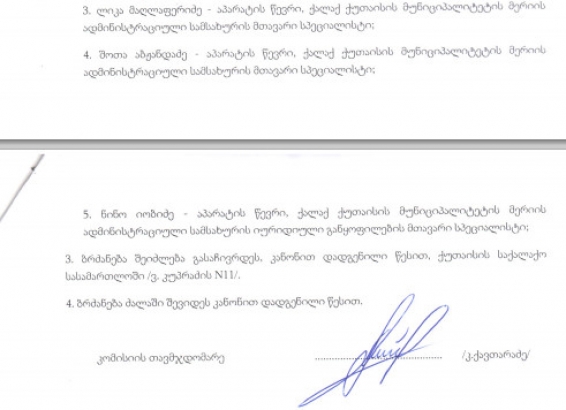 3. ლიკა მაღლაფერიძე - აპარატის წევრი, ქალაქ ქუთაისის მუნიციპალიტეტის მერიის
ადმინისტრაციული სამსახურის მთავარი სპეციალისტი;
4. შოთა აბჟანდაძე - აპარატის წევრი, ქალაქ ქუთაისის მუნიციპალიტეტის მერიის
ადმინისტრაციული სამსახურის მთავარი სპეციალისტი;
5. ნინო იობიძე - აპარატის წევრი, ქალაქ ქუთაისის მუნიციპალიტეტის მერიის
ადმინისტრაციული სამსახურის იურიდიული განყოფილების მთავარი სპეციალისტი;
3. ბრძანება შეიძლება გასაჩივრდეს, კანონით დადგენილი წესით, ქუთაისის საქალაქო
სასამართლოში /ვ. კუპრაძის N11/.
4. ბრძანება ძალაში შევიდეს კანონით დადგენილი წესით.
კომისიის თავმჯდომარე ................................ /კ.ქავთარაძე/